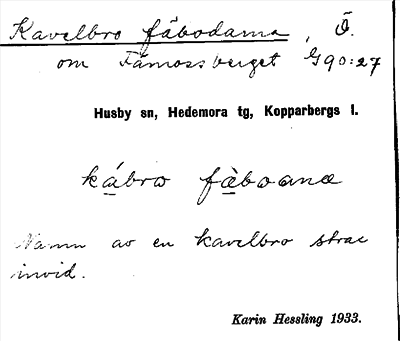 Kavelbro fäbodarna, Ö.
om Fämossberget G 90:27
Husby sn, Hedemora tg, Kopparbergs l.
kábro fàboanæ
Namn av en kavelbro strax
invid.
Karin Hessling 1933.